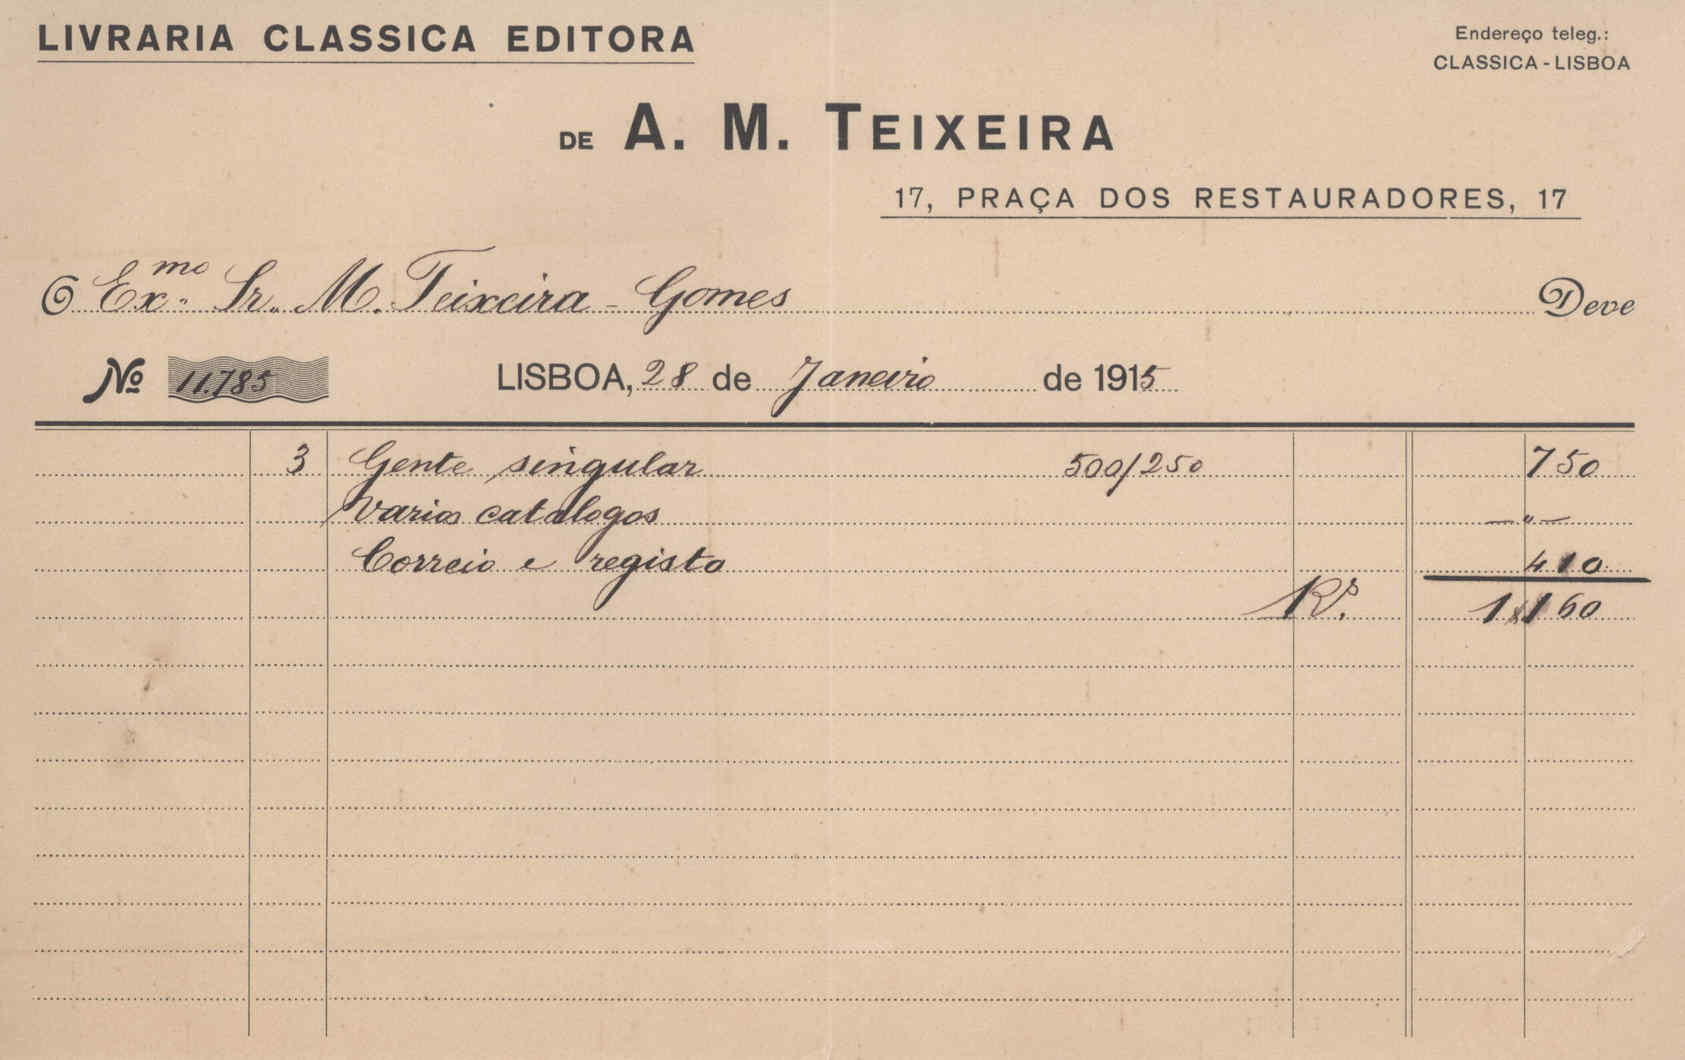 LIVRARIA CLASSICA EDITORA
Endereço teleg.:
CLASSICA - LISBOA
DE A. M. TEIXEIRA
17, PRAÇA DOS RESTAURADORES, 17
O Ex.mo Sr. M. Teixeira - Gomes Deve
No 11.785 LISBOA, 28 de Janeiro de 1915
3 Gente singular 500/250 750
Varios catalogos —"—
Correio e registo 410
Rs. 1,160